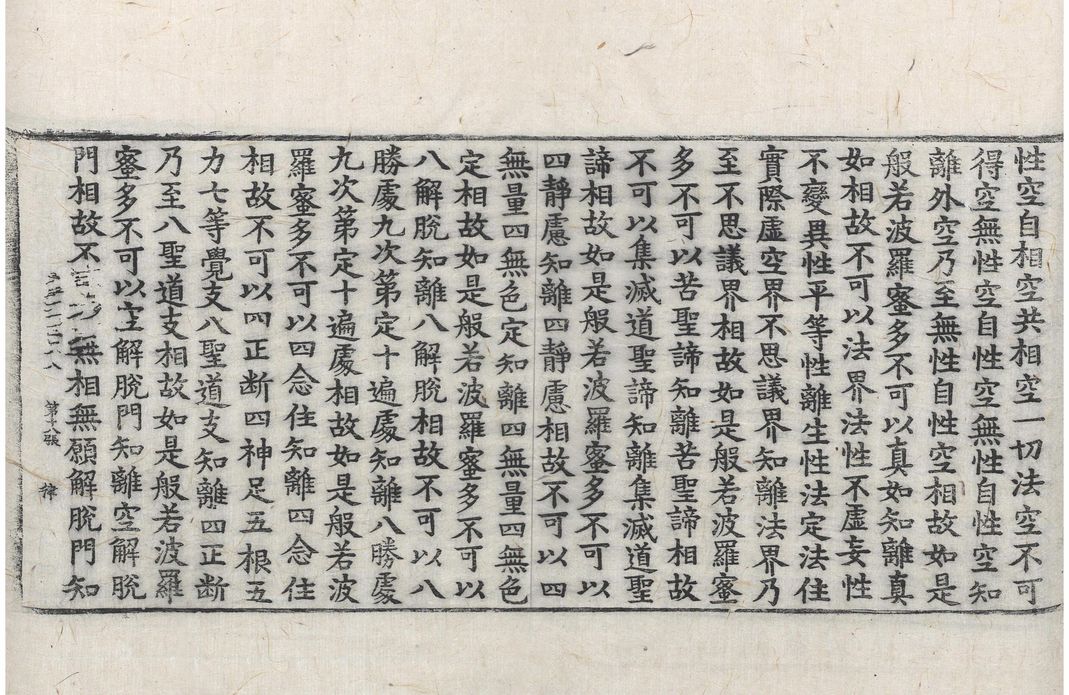 性空自相空共相空一切法空不可
得空無性空自性空無性自性空知
離外空乃至無性自性空相故如是
般若波羅蜜多不可以真如知離真
如相故不可以法界法性不虛妄性
不變異性平等性離生性法定法住
實際虛空界不思議界知離法界乃
至不思議界相故如是般若波羅蜜
多不可以苦聖諦知離苦聖諦相故
不可以集滅道聖諦知離集滅道聖
諦相故如是般若波羅蜜多不可以
四靜慮知離四靜慮相故不可以四
無量四無色定知離四無量四無色
定相故如是般若波羅蜜多不可以
八解脫知離八解脫相故不可以八
勝處九次第定十遍處知離八勝處
九次第定十遍處相故如是般若波
羅蜜多不可以四念住知離四念住
相故不可以四正断四神足五根五
力七等覺支八聖道支知離四正断
乃至八聖道支相故如是般若波羅
蜜多不可以空解脫門知離空解脫
門相故不無相無願解脫門知
第 張 律